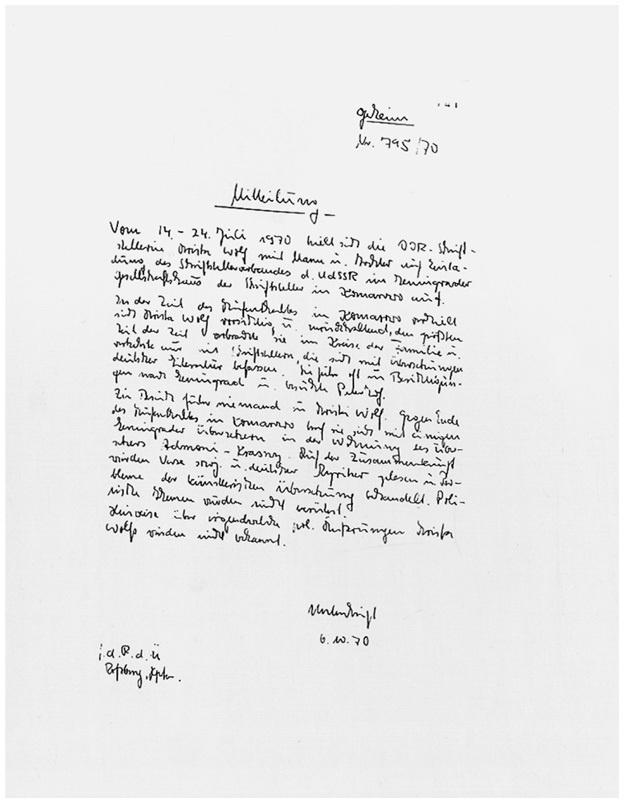 geheim
Nr. 795/70
Mitteilung
Vom 14. - 24. Juli 1970 hielt sich die DDR-Schrift-
stellerin Christa Wolf mit Mann u. Tochter auf Einla-
dung des Schriftstellerverbandes d. UdSSR im Leningrader
der Schriftsteller in Komarowo auf.
In der Zeit des Aufenthaltes in Komarowo verhielt
sich Christa Wolf vorsichtig u. zurückhaltend, den größten
Teil der Zeit verbrachte sie im Kreise der Familie u.
verkehrte nur mit Schriftstellern, die sich mit Übersetzungen
deutscher Literatur befassen. Sie fuhr oft zu Besichtigun-
gen nach Leningrad u. besuchte Peterhof.
Zu Besuch fuhr niemand zu Christa Wolf. Gegen Ende
des Aufenthaltes in Komarowo traf sie sich mit einigen
Leningrader Übersetzern in der Wohnung des Über-
setzers Admoni - Auf der Zusammenkunft
wurden Verse sowj. u. deutscher Lyriker gelesen u. Pro-
bleme der künstlerischen Übersetzung behandelt. Poli-
tische Themen wurden nicht berührt.
Hinweise über irgendwelche pol. Äußerungen Christa
Wolfs wurden nicht bekannt.
6.10.70
f.d.R.d.Ü